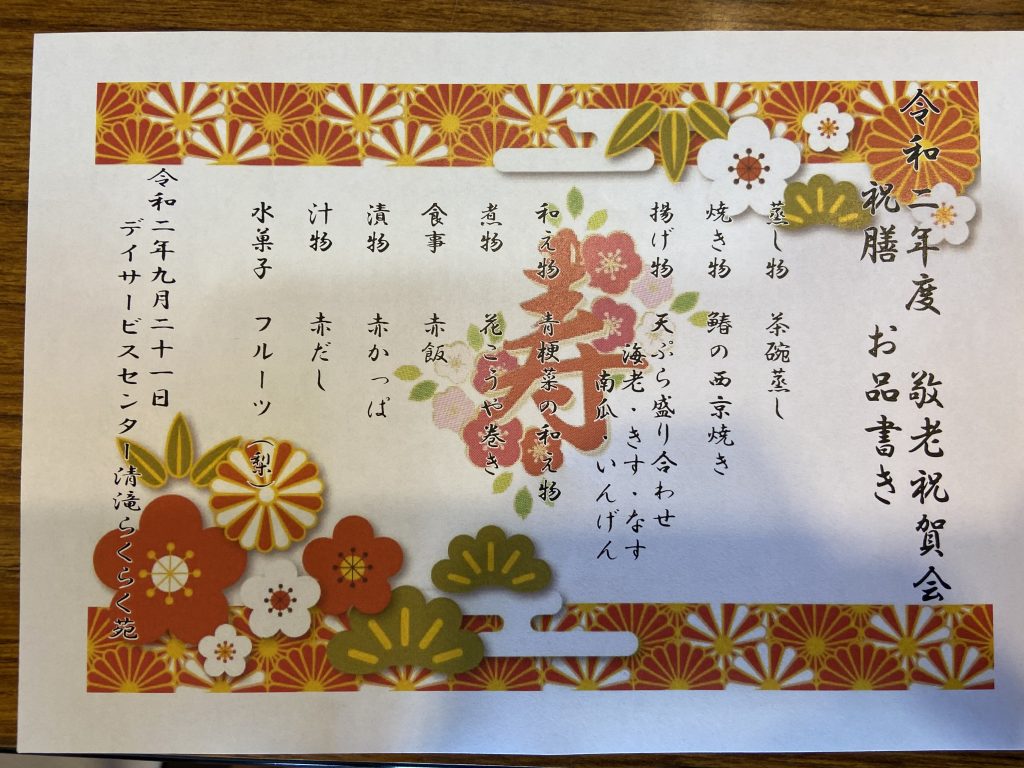 令和二年度 敬老祝賀会
祝膳 お品書き
蒸し物 茶碗蒸し
焼き物 鰆の西京焼き
揚げ物 天ぷら盛り合わせ
海老・きす・なす
南瓜・いんげん
和え物 青梗菜の和え物
煮物 花こうや巻き
食事 赤飯
漬物 赤かっぱ
汁物 赤だし
水菓子 フルーツ（梨）
令和二年九月二十一日
デイサービスセンター清滝らくらく苑
寿